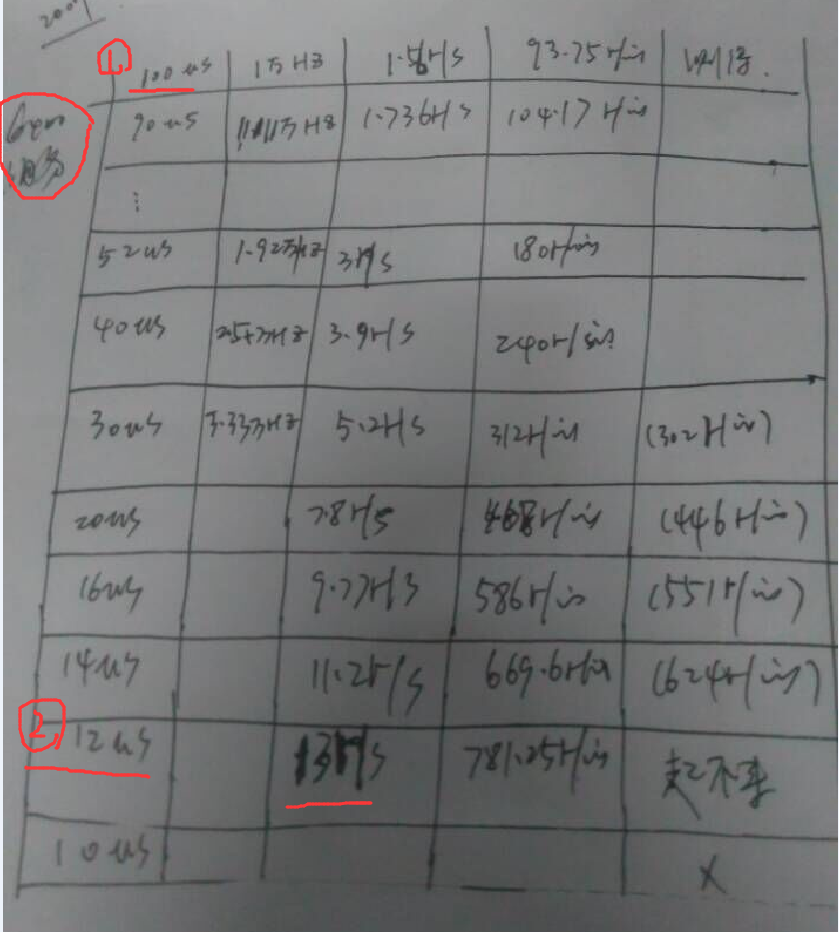 200
1. 100us 1万HZ 1.56r/s 93.75r/min
90us 1.736r/s 104.17r/min
⋮
52us 1.92万HZ 3r/s 180r/min
40us 2.5万HZ 3.9r/s 240r/min
30us 3.33万HZ 5.2r/s 312r/min (302r/min)
20us 7.8r/s 468r/min (446r/min)
16us 9.77r/s 586r/min (551r/min)
14us 11.2r/s 669.6r/min (624r/min)
2. 12us 13r/s 781.25r/min 起不来
10us X